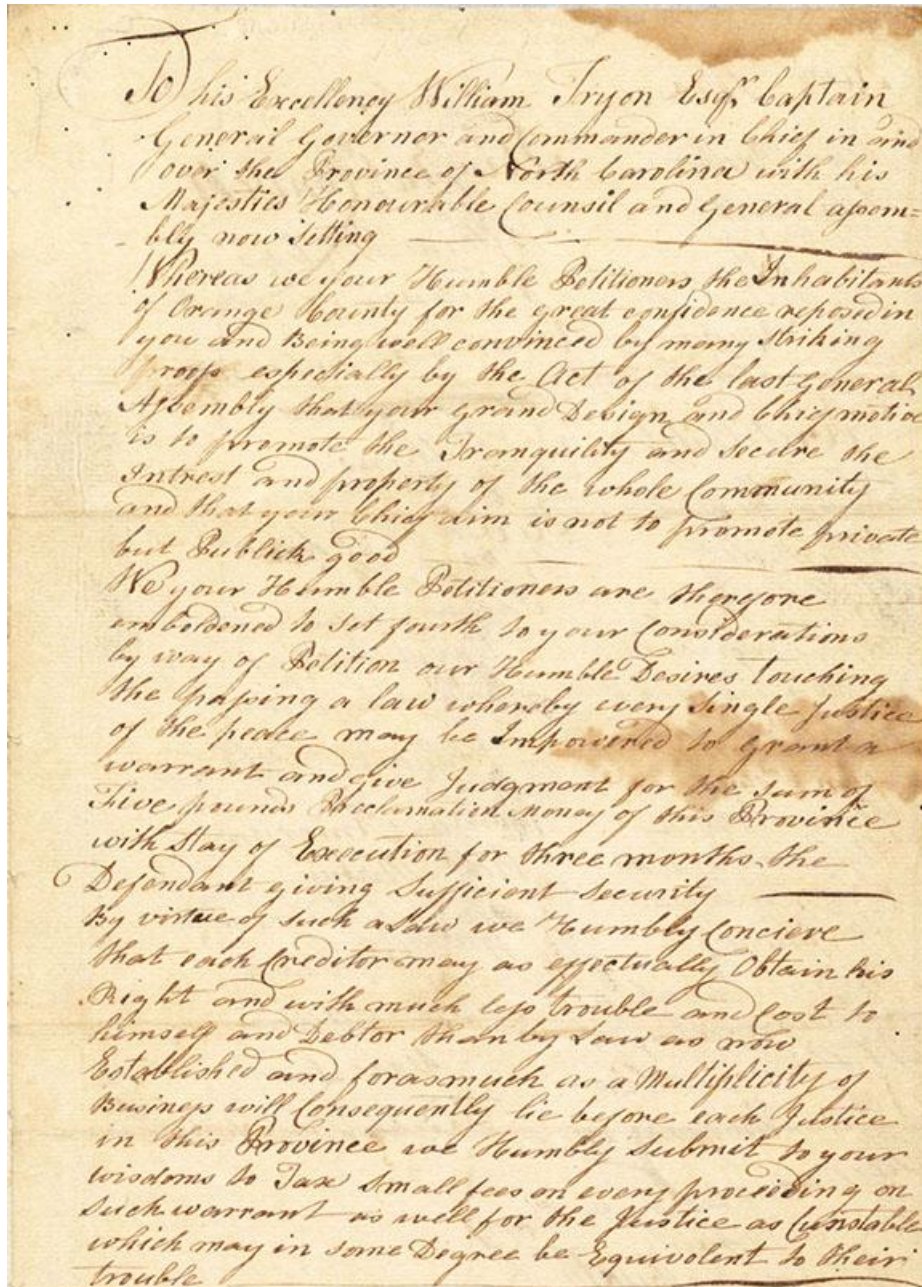 To his Excellency William Tryon Esqr. Captain
General Governor and Commander in Chief in and
over the Province of North Carolina with his
Majesties Honourable Counsil and General assem-
bly now Setting
Whereas we your Humble Petitioners the Inhabitants
of Orange County for the great confidence reposed in
you and Being well convinced by many striking
proofs especially by the Act of the last General
Assembly that your grand Design and Chief motive
is to promote the Tranquility and Secure the
Intrest and property of the whole Community
and that your Chief aim is not to promote private
but Publick good
We your Humble Petitioners are therefore
emboldened to set fourth to your Considerations
by way of Petition our Humble Desires touching
the passing a law whereby every Single Justice
of the peace may be Impowered to grant a
warrant and give Judgment for the Sum of
Five pounds Proclamation Money of this Province
with Stay of Execution for three months the
Defendant giving Sufficient Security
By virtue of such a Law we Humbly Concieve
that each Creditor may as effectually Obtain his
Right and with much less trouble and Cost to
himself and Debtor than by Law as now
Established and forasmuch as a Multiplicity of
Business will Consequently lie before each Justice
in this Province we Humbly Submit to your
wisdoms to Tax Small fees on every proceeding on
Such warrant as well for the Justice as Cunstable
which may in some Degree be Equivalent to their
trouble